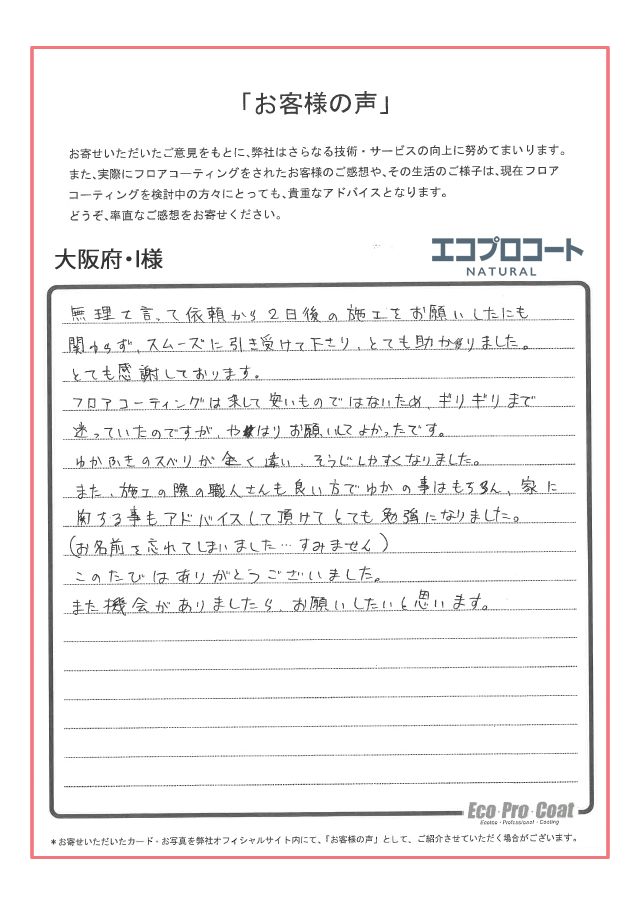 「お客様の声」
お寄せいただいたご意見をもとに、弊社はさらなる技術・サービスの向上に努めてまいります。
また、実際にフロアコーティングをされたお客様のご感想や、その生活のご様子は、現在フロア
コーティングを検討中の方々にとっても、貴重なアドバイスとなります。
どうぞ、率直なご感想をお寄せください。
大阪府・I様
エコプロコート
NATURAL
無理を言って依頼から2日後の施工をお願いしたにも
関わらず、スムーズに引き受けて下さり、とても助かりました。
とても感謝しております。
フロアコーティングは決して安いものではないため、ギリギリまで
迷っていたのですが、やはりお願いしてよかったです。
ゆかふきのスベリが全く違い、そうじしやすくなりました。
また、施工の際の職人さんも良い方でゆかの事はもちろん、家に
関する事もアドバイスして頂けてとても勉強になりました。
(お名前を忘れてしまいました…すみません)
このたびはありがとうございました。
また機会がありましたら、お願いしたいと思います。
Eco・Pro・Coat
Ecolos・Professional・Coating
＊お寄せいただいたカード・お写真を弊社オフィシャルサイト内にて、「お客様の声」として、ご紹介させていただく場合がございます。